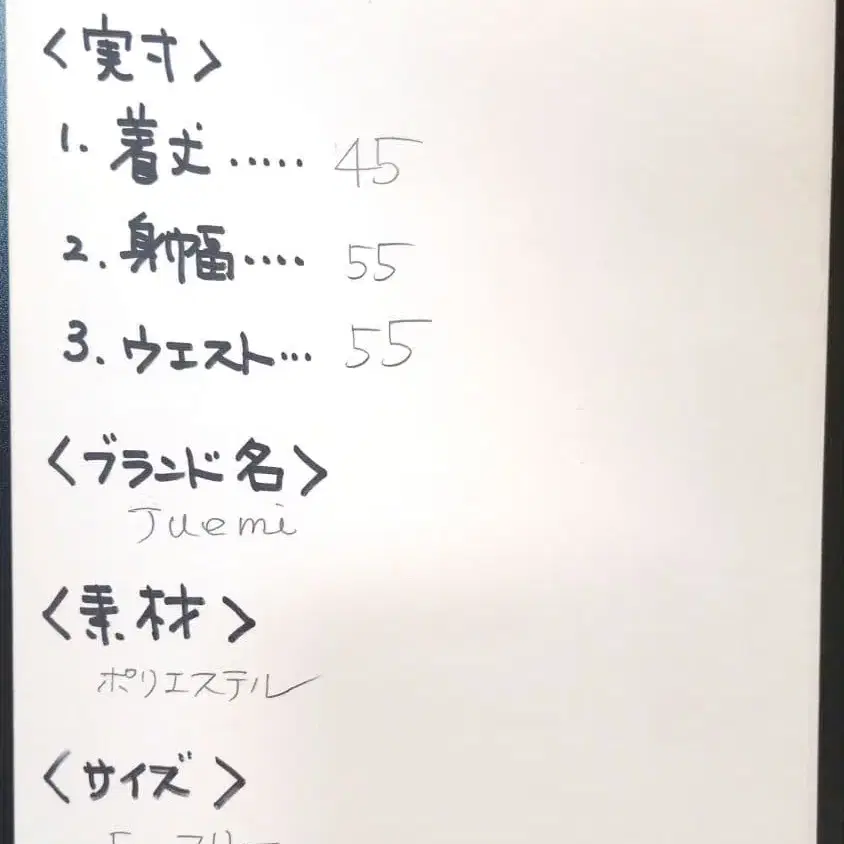 <実寸>
1. 着丈..... 45
2. 身幅.... 55
3. ウエスト... 55
<ブランド名>
Juemi
<素材>
ポリエステル
<サイズ>